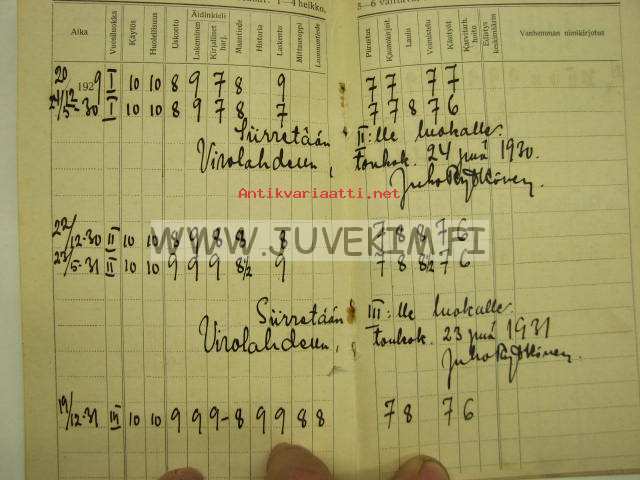 1—4 heikko,
5—6 välttävä,
Aika Vuosiluokka Käytös Huolellisuus Uskonto Äidinkieli Lukeminen Kirjalliset harj. Maantiede Historia Laskento Mittausoppi Luonnontiede Piirustus Kaunokirj. Laulu Voimistelu Käsityöt Kasvitarh. hoito Edistys keskimäärin Vanhemman nimikirjotus
20/12 1929 I 10 10 8 9 7 8 9 7 7 7 7
24/5-30 I 10 10 8 9 7 8 7 7 7 8 7 6
Siirretään II:lle luokalle.
Virolahdella, toukok. 24 pnä 1930.
Antikvariaatti.net
WWW.JUVEKIM.FI
22/12-30 II 10 10 8 9 8 8 8 7 8 8 7 6
23/5-31 II 10 10 9 9 9 8½ 9 7 8 8½ 7 6
Siirretään III:lle luokalle.
Virolahdella, toukok. 23 pnä 1931
19/12-31 III 10 10 9 9 9- 8 9 9 8 8 7 8 7 6